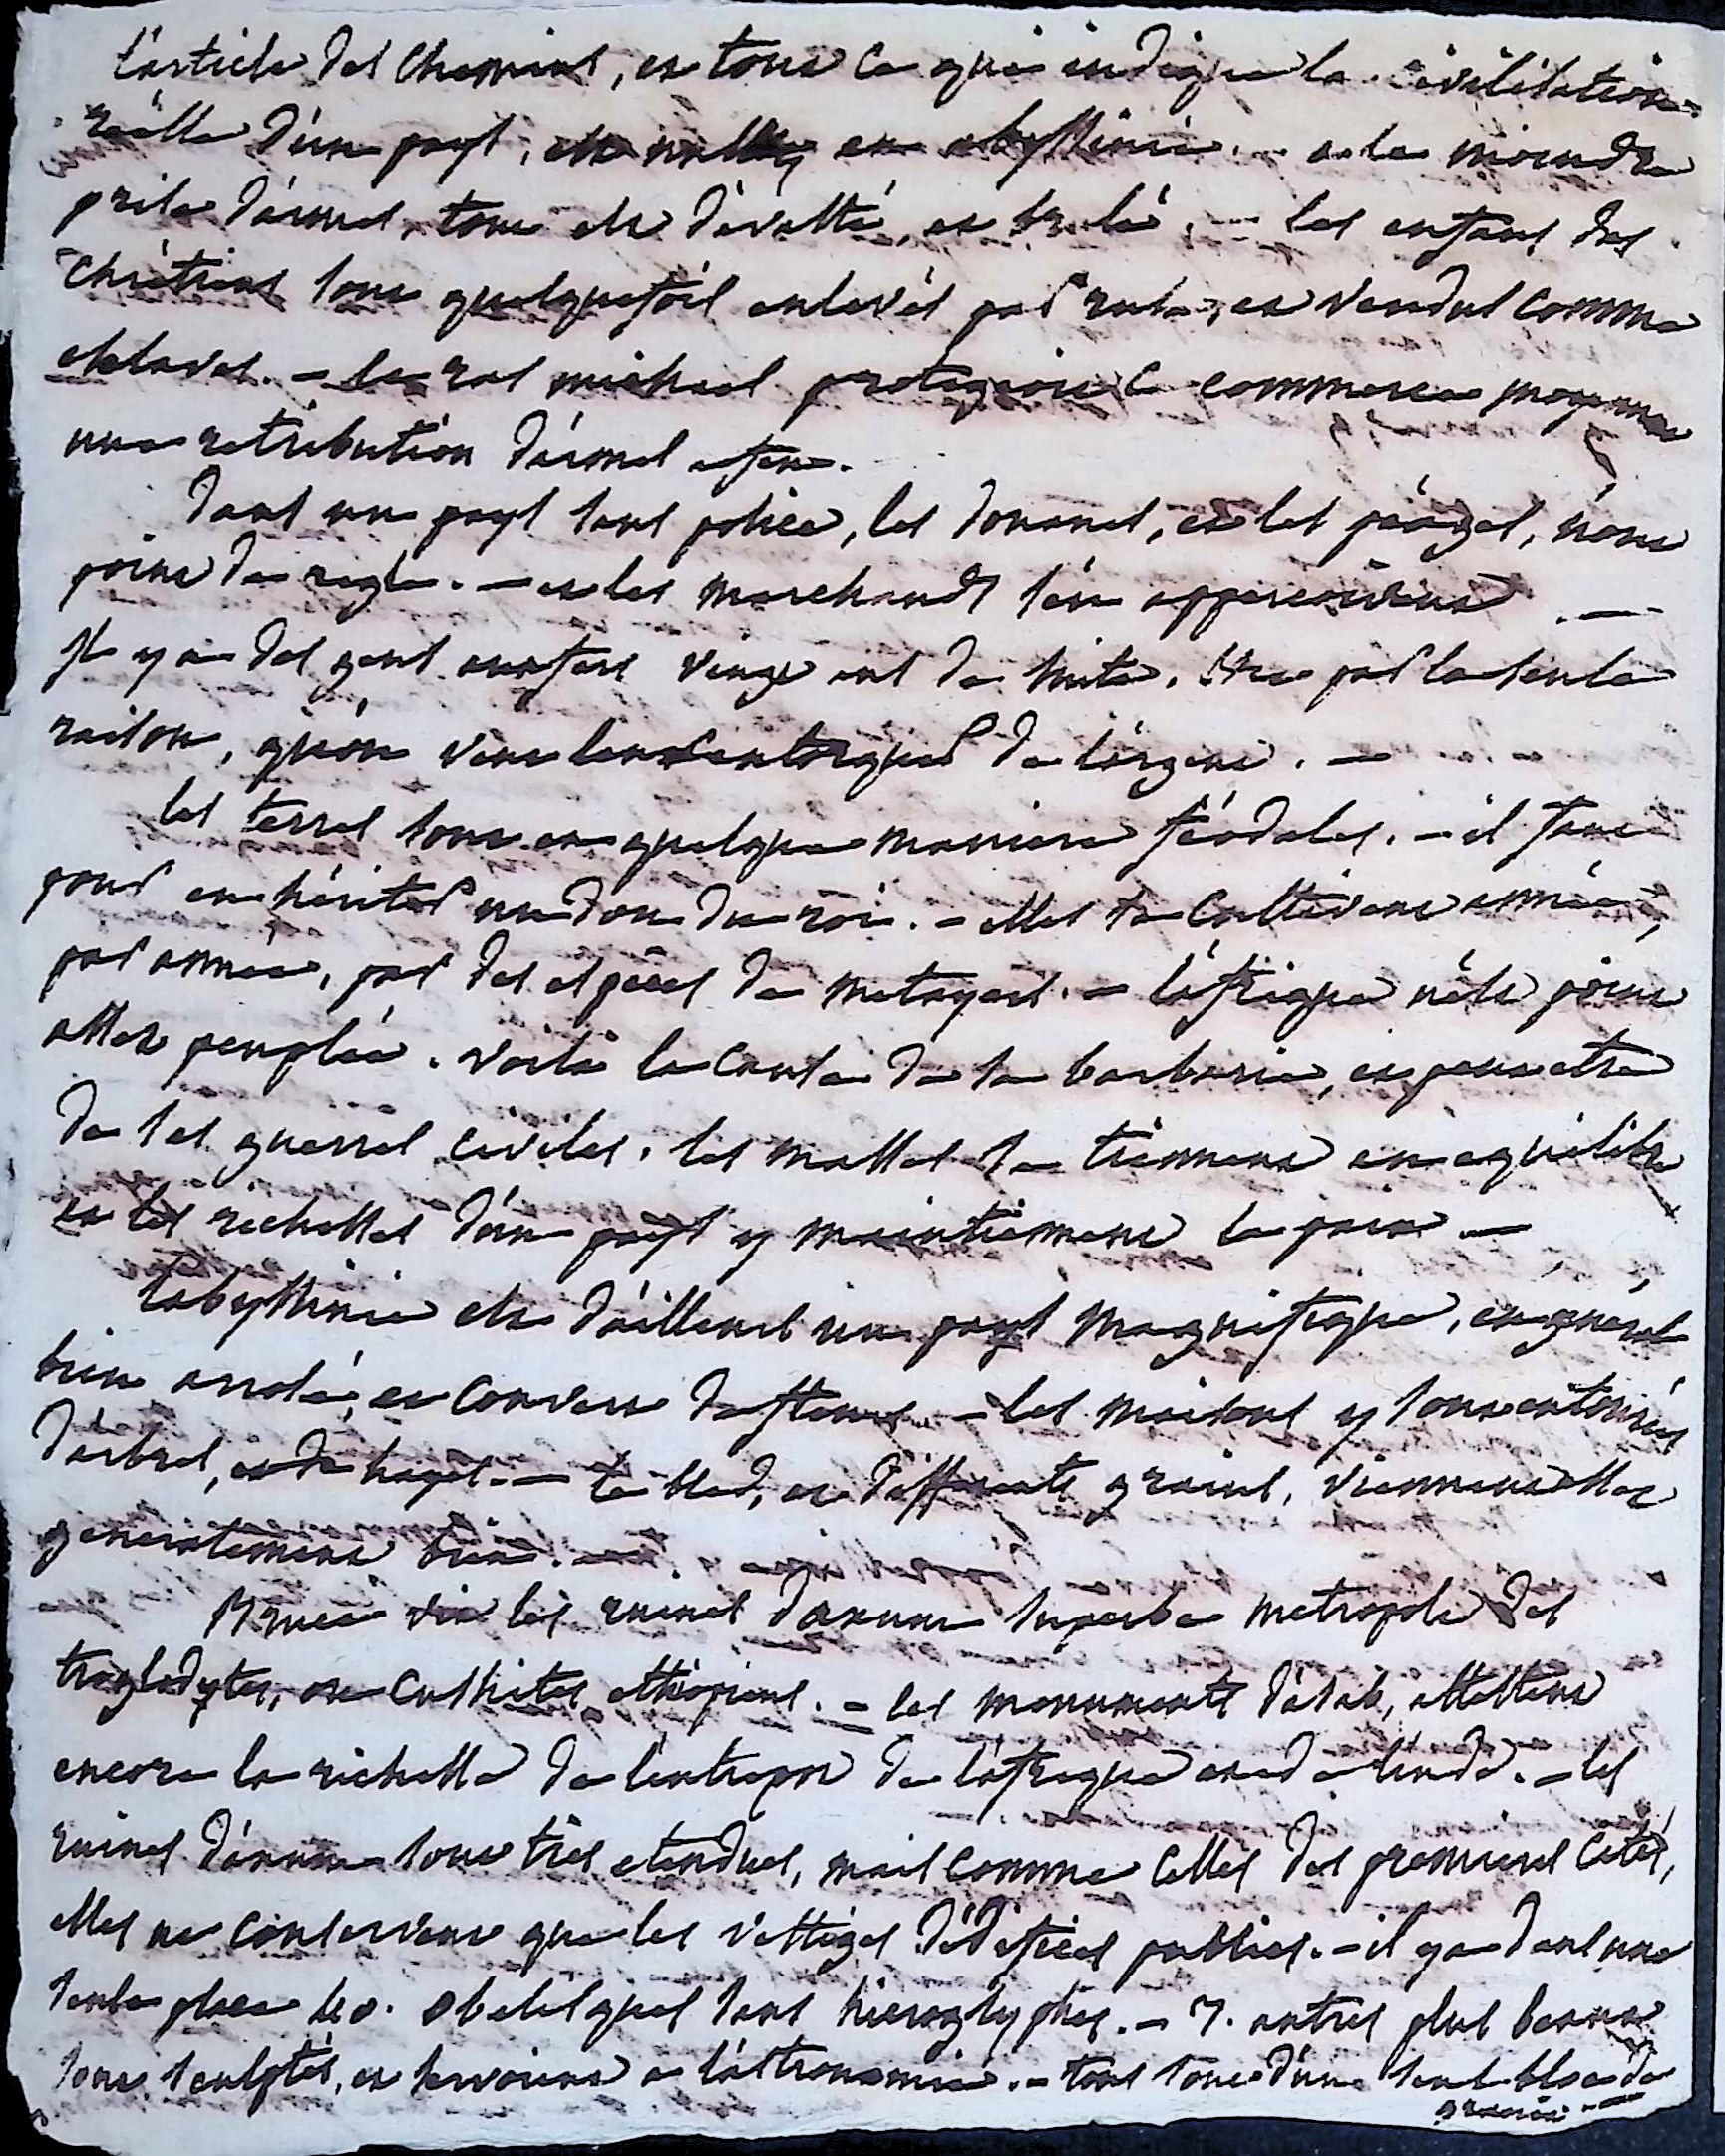 l'article des chemins, et tout ce qui indique la civilisation
réelle d'un pays, est nulle en abyssinie. — a la moindre
prise d'armes, tout est dévasté, et brulé. — les enfans des
chrétiens sont quelquefois enlevés par ruse, et vendus comme
esclaves. — le ras michael protegeoit ce commerce moyennant
une retribution d'armes a feu.
dans un pays sans police, les douanes, et les péages, n'ont
point de regle. — et les marchands s'en apperçoivent. —
Il y a des gens aux fers vingt ans de suite, par la seule
raison, qu'on veut leur extorquer de l'argent. —
les terres sont en quelque maniere féodales. — il faut
pour en hériter un don du roi. — elles se cultivent année,
par année, par des especes de metayers. — l'afrique n'est point
assez peuplée. voilà la cause de sa barbarie, et peut etre
de ses guerres civiles. les masses se tiennent en equilibre
et les richesses d'un pays y maintiennent la paix —
l'abyssinie est d'ailleurs un pays magnifique, en général
bien arrosé, et couvert de fleurs — les maisons y sont entourées
d'arbres, et de hayes. — le bled, et differents grains, viennent assez
generalement bien. —
Bruce vit les ruines d'axum superbe metropole des
troglodytes, ou Cushites ethiopiens. — les monuments d'asab, attestent
encore la richesse de l'entrepot de l'afrique et de l'inde. — les
ruines d'axum sont très etendues, mais comme celles des premieres cités,
elles ne conservent que les vestiges d'édifices publics. — il y a dans une
seule place 40. obelisques sans hieroglyphes. — 7. autres plus beaux
sont sculptés, et servoient a l'astronomie. — tous sont d'un seul bloc de
granit. —